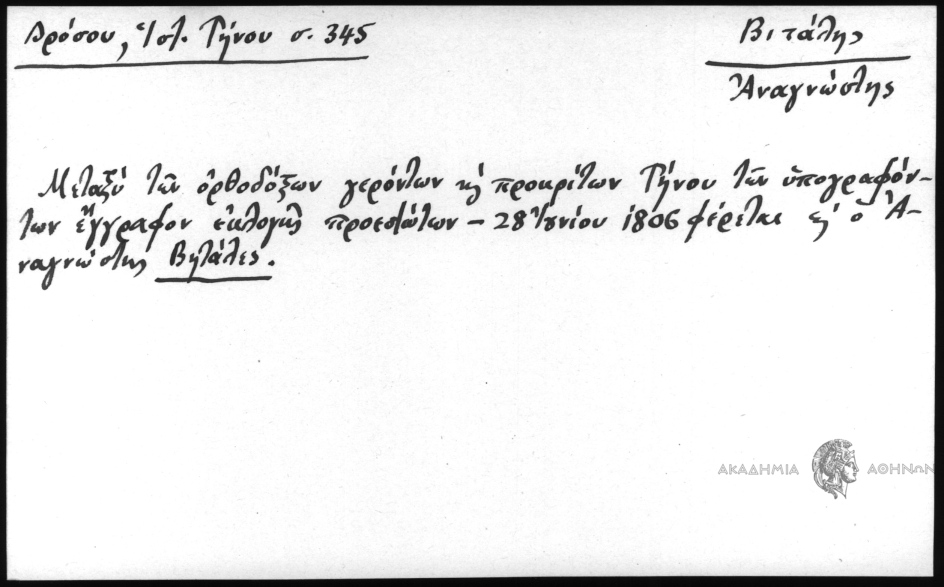 Δρόσου, Ἱστ. Τήνου σ. 345
Βιτάλης
Ἀναγνώστης
Μεταξὺ τῶν ὀρθοδόξων γερόντων κὴ προκρίτων Τήνου τῶν ὑπογραφόν-
των ἔγγραφον ἐκλογῆς προεστώτων – 28 Ἰουνίου 1806 φέρεται κὴ ὁ Ἀ-
ναγνώστης Βητάλες.
ΑΚΑΔΗΜΙΑ ΑΘΗΝΩΝ